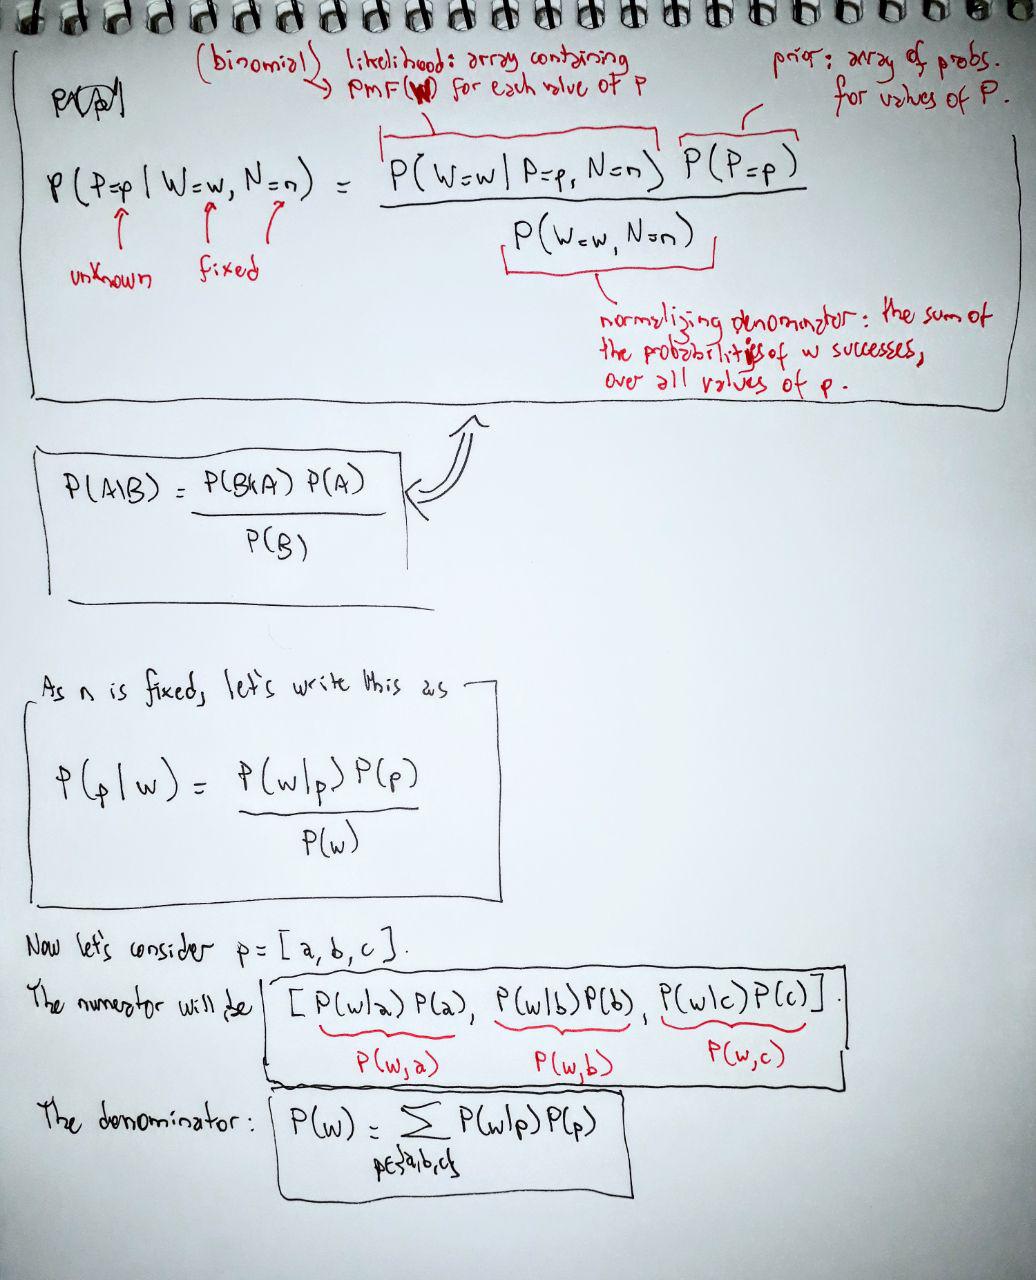 (binomial) likelihood: array containing
PMF(W) for each value of P
prior: array of probs.
for values of P.
P(P=p | W=w, N=n) = P(W=w | P=p, N=n) P(P=p)
P(W=w, N=n)
unknown fixed
normalizing denominator: the sum of
the probabilities of w successes,
over all values of p.
P(A|B) = P(B|A) P(A)
P(B)
As n is fixed, let's write this as
P(p|w) = P(w|p) P(p)
P(w)
Now let's consider p = [a, b, c].
The numerator will be [P(w|a) P(a), P(w|b) P(b), P(w|c) P(c)].
P(w,a) P(w,b) P(w,c)
The denominator: P(w) = ∑ P(w|p) P(p)
p∈{a,b,c}